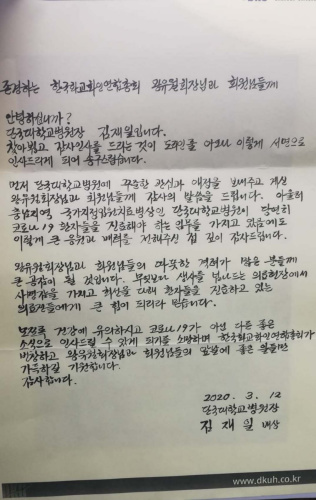 존경하는 한국화교화인연합총회 왕유원회장님과 회원님들께
안녕하십니까?
단국대학교병원장 김재일입니다.
찾아뵙고 감사인사를 드리는 것이 도리인줄 아오나 이렇게 서면으로
인사드리게 되어 송구스럽습니다.
먼저 단국대학교병원에 꾸준한 관심과 애정을 보내주고 계신
왕유원회장님과 회원님들께 감사의 말씀을 드립니다. 아울러
충남지역 국가지정입원치료병상인 단국대학교병원이 당연히
코로나19 환자들을 진료해야 하는 임무를 가지고 있음에도
이렇게 큰 응원과 배려를 전해주신 점 깊이 감사드립니다.
왕유원회장님과 회원님들의 따뜻한 격려가 많은 분들께
큰 공감이 될 것입니다. 무엇보다 생사를 넘나드는 의료현장에서
사명감을 가지고 최선을 다해 환자들을 진료하고 있는
의료진들에게 큰 힘이 되리라 믿습니다.
모쪼록 건강에 유의하시고 코로나19가 아닌 다른 좋은
소식으로 인사드릴 수 있게 되기를 소망하며 한국화교화인연합총회가
번창하고 왕유원회장님과 회원님들의 앞날에 좋은 일들만
가득하길 기원합니다.
감사합니다.
2020. 3. 12
단국대학교병원장
김재일 배상
www.dkuh.co.kr